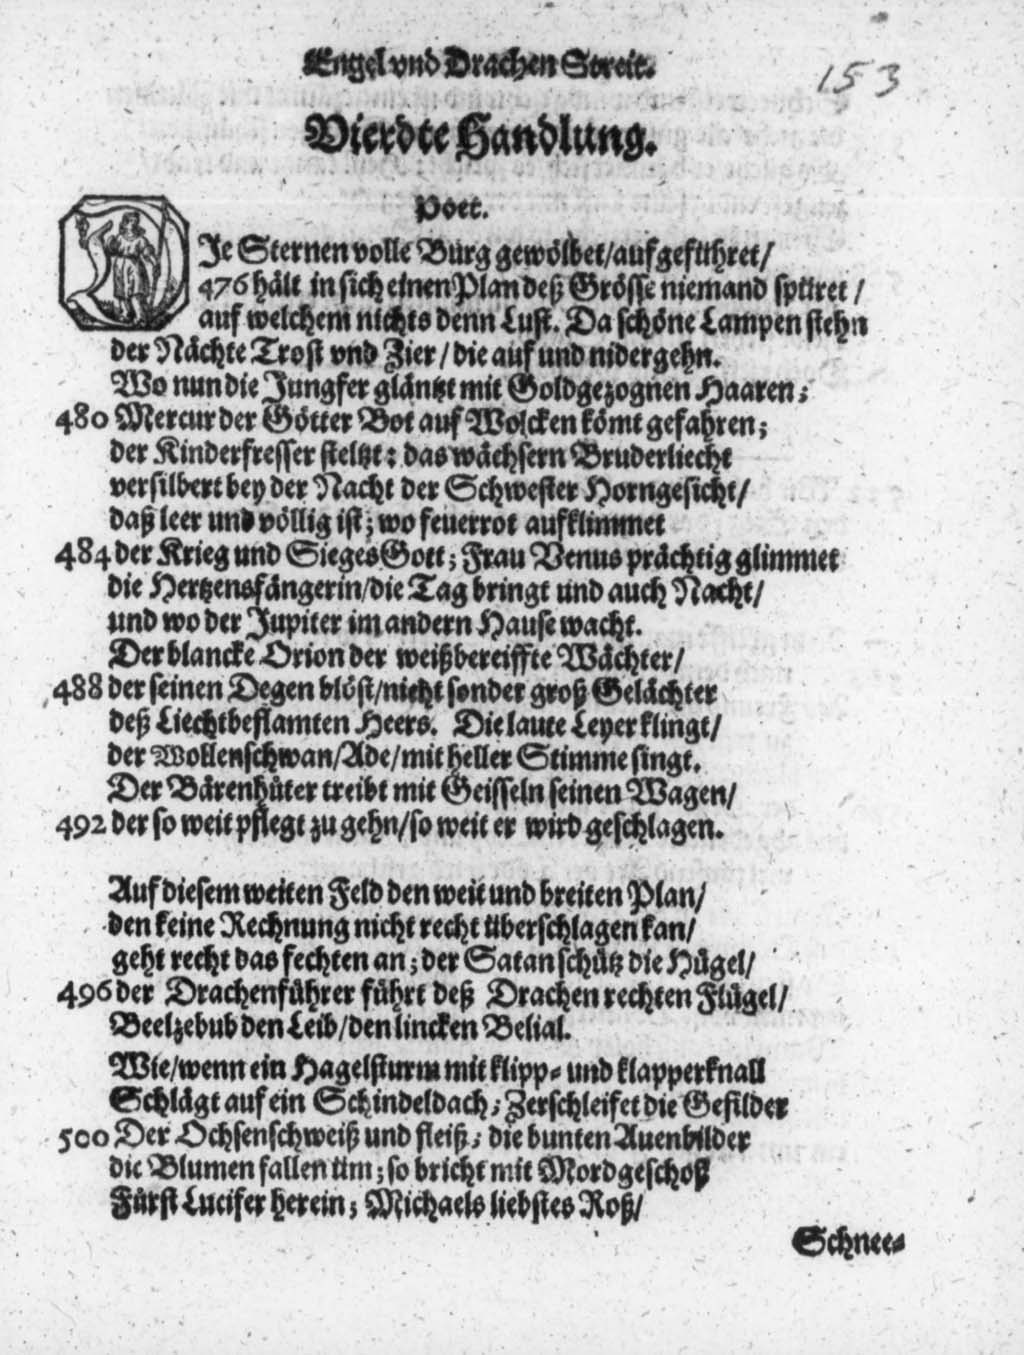 Engel vnd Drachen Streit.
153
Vierdte Handlung.
Poet.
DJe Sternen volle Burg gewölbet/auf geführet/
476 hält in sich einen Plan deß Grösse niemand spüret /
auf welchem nichts denn Lust. Da schöne Lampen stehn
der Nächte Trost vnd Zier / die auf und nidergehn.
Wo nun die Jungfer gläntzt mit Goldgezognen Haaren;
480 Mercur der Götter Bot auf Wolcken kömt gefahren;
der Kinderfresser steltzt: das wächsern Bruderliecht
versilbert bey der Nacht der Schwester Horngesicht/
daß leer und völlig ist; wo feuerrot aufklimmet
484 der Krieg und Sieges Gott; Frau Venus prächtig glimmet
die Hertzensfängerin/die Tag bringt und auch Nacht/
und wo der Jupiter im andern Hause wacht.
Der blancke Orion der weißbereiffte Wächter/
488 der seinen Degen blöst/nicht sonder groß Gelächter
deß Liechtbeflamten Heers. Die laute Leyer klingt/
der Wollenschwan/Ade/mit heller Stimme singt.
Der Bärenhüter treibt mit Geisseln seinen Wagen/
492 der so weit pflegt zu gehn/so weit er wird geschlagen.
Auf diesem weiten Feld den weit und breiten Plan/
den keine Rechnung nicht recht überschlagen kan/
geht recht das fechten an; der Satan schütz die Hügel/
496 der Drachenführer führt deß Drachen rechten Flügel/
Beelzebub den Leib/den lincken Belial.
Wie/wenn ein Hagelsturm mit klipp- und klapperknall
Schlägt auf ein Schindeldach; Zerschleifet die Gefilder
500 Der Ochsenschweiß und fleiß; die bunten Auenbilder
die Blumen fallen üm; so bricht mit Mordgeschoß
Fürst Lucifer herein; Michaels liebstes Roß/
Schnee-